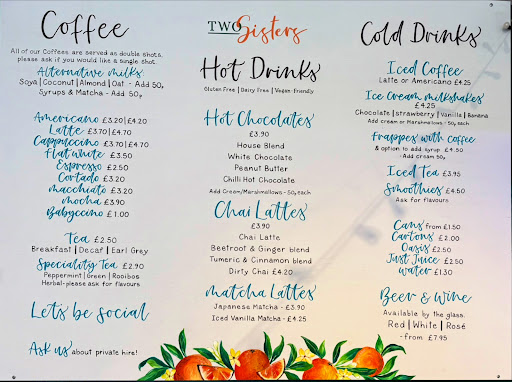 Coffee
All of our Coffees are served as double shots.
please ask if you would like a single shot.
Alternative milks
Soya | Coconut | Almond | Oat - Add 50p
Syrups & Matcha - Add 50p
Americano £3.20 | £4.20
Latte £3.70 | £4.70
Cappuccino £3.70 | £4.70
Flat white £3.50
Espresso £2.50
Cortado £3.20
macchiato £3.20
mocha £3.90
Babyccino £1.00
Tea £2.50
Breakfast | Decaf | Earl Grey
Speciality Tea £2.90
Peppermint | Green | Rooibos
Herbal-please ask for flavours
Let's be social
Ask us about private hire!
TWO Sisters
Hot Drinks
Gluten Free | Dairy Free | Vegan-Friendly
Hot Chocolates
£3.90
House Blend
White Chocolate
Peanut Butter
Chilli Hot Chocolate
Add Cream/Marshmallows - 50p each
Chai Lattes
£3.90
Chai Latte
Beetroot & Ginger blend
Tumeric & Cinnamon blend
Dirty Chai £4.20
matcha Lattes
Japanese Matcha - £3.90
Iced Vanilla Matcha - £4.25
Cold Drinks
Iced Coffee
Latte or Americano £4.25
Ice Cream milkshakes
£4.25
Chocolate | strawberry | Vanilla | Banana
Add cream or Marshmallows - 50p each
Frappes with coffee
& option to add syrup £4.50
- Add cream 50p
Iced Tea £3.95
Smoothies £4.50
Ask for flavours
Cans from £1.50
Cartons £2.00
Oasis £2.50
Just Juice £2.50
water £1.30
Beer & Wine
Available by the glass.
Red | White | Rosé
- from £7.95